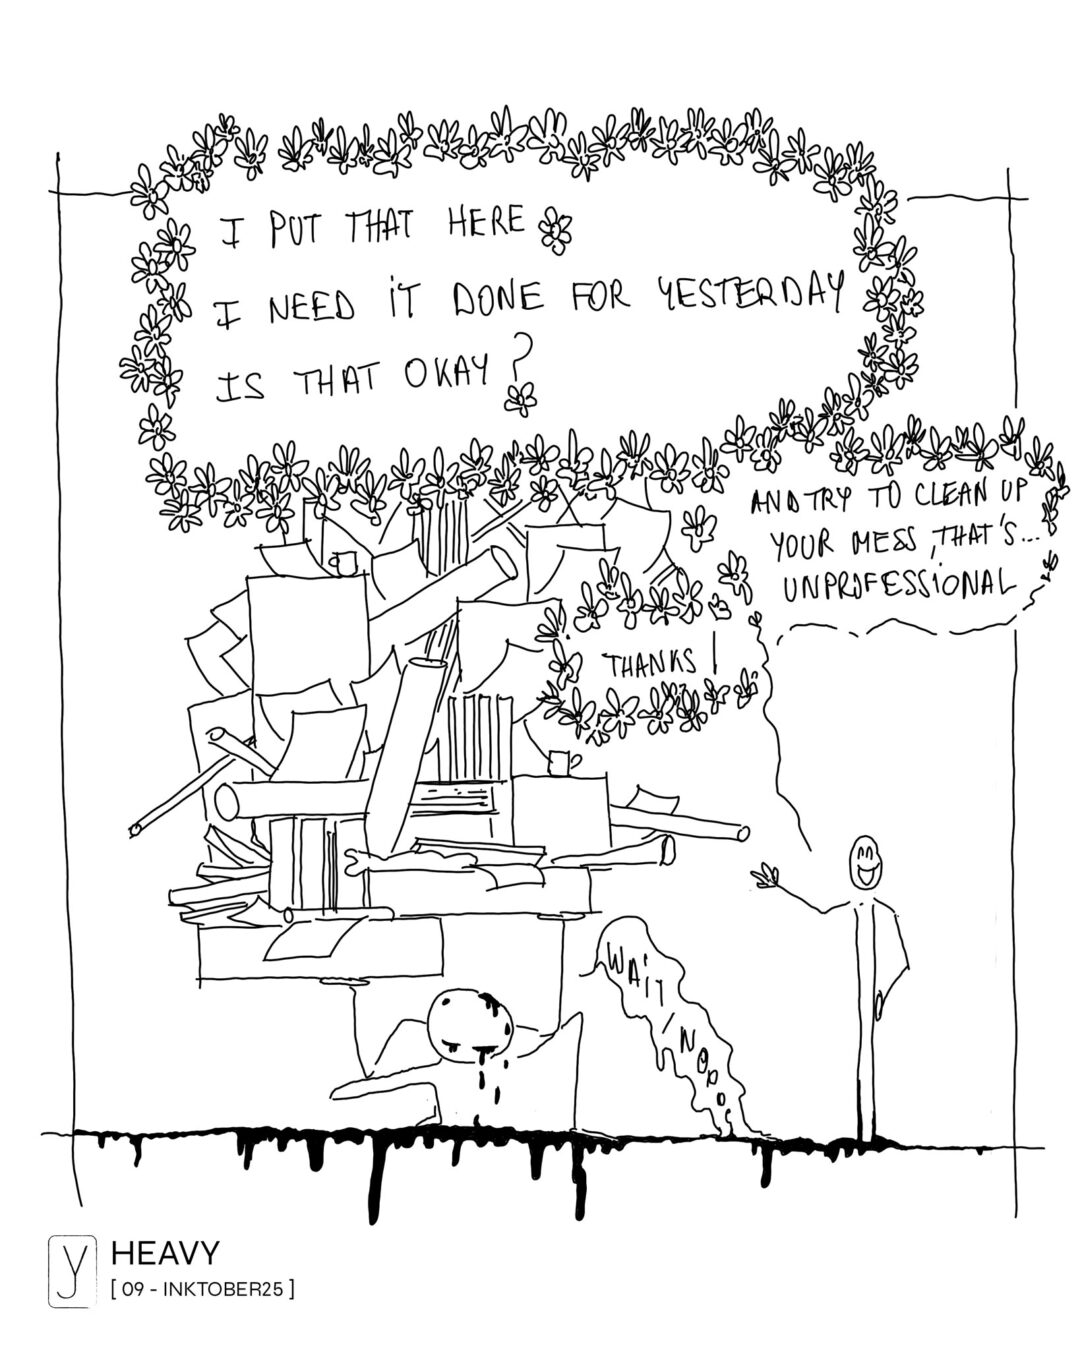 I PUT THAT HERE
I NEED IT DONE FOR YESTERDAY
IS THAT OKAY?
AND TRY TO CLEAN UP
YOUR MESS, THAT'S...
UNPROFESSIONAL
THANKS!
WAIT
/NOOOO
y HEAVY
[ 09 - INKTOBER25 ]